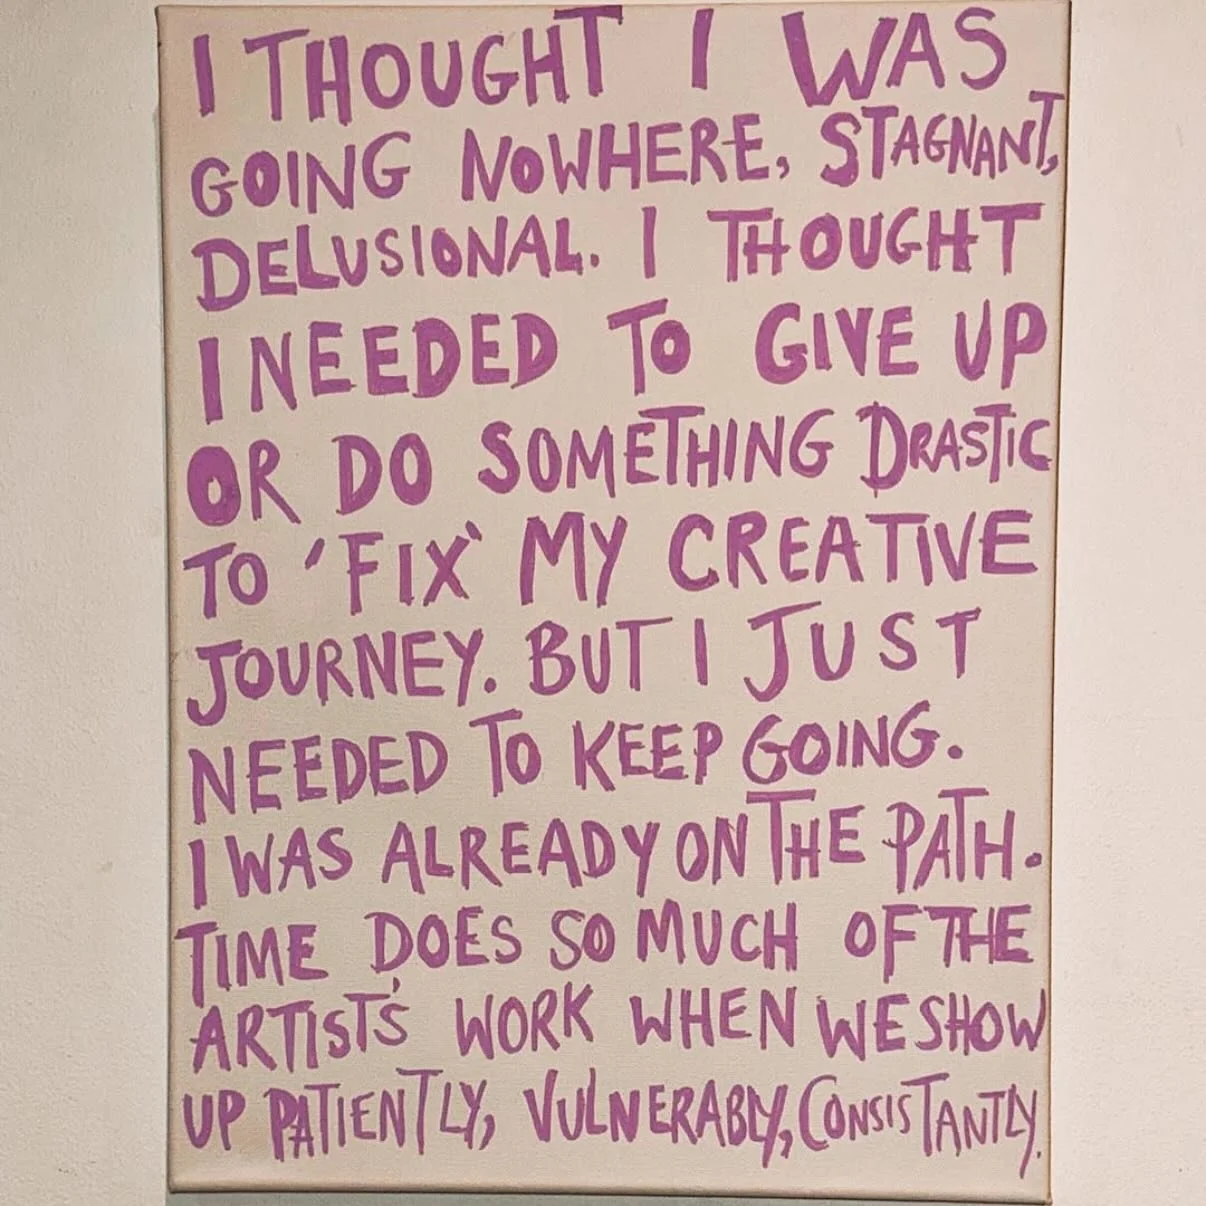 I THOUGHT I WAS
GOING NOWHERE, STAGNANT,
DELUSIONAL. I THOUGHT
I NEEDED TO GIVE UP
OR DO SOMETHING DRASTIC
TO 'FIX' MY CREATIVE
JOURNEY. BUT I JUST
NEEDED TO KEEP GOING.
I WAS ALREADY ON THE PATH.
TIME DOES SO MUCH OF THE
ARTIST'S WORK WHEN WE SHOW
UP PATIENTLY, VULNERABLY, CONSISTANTLY.